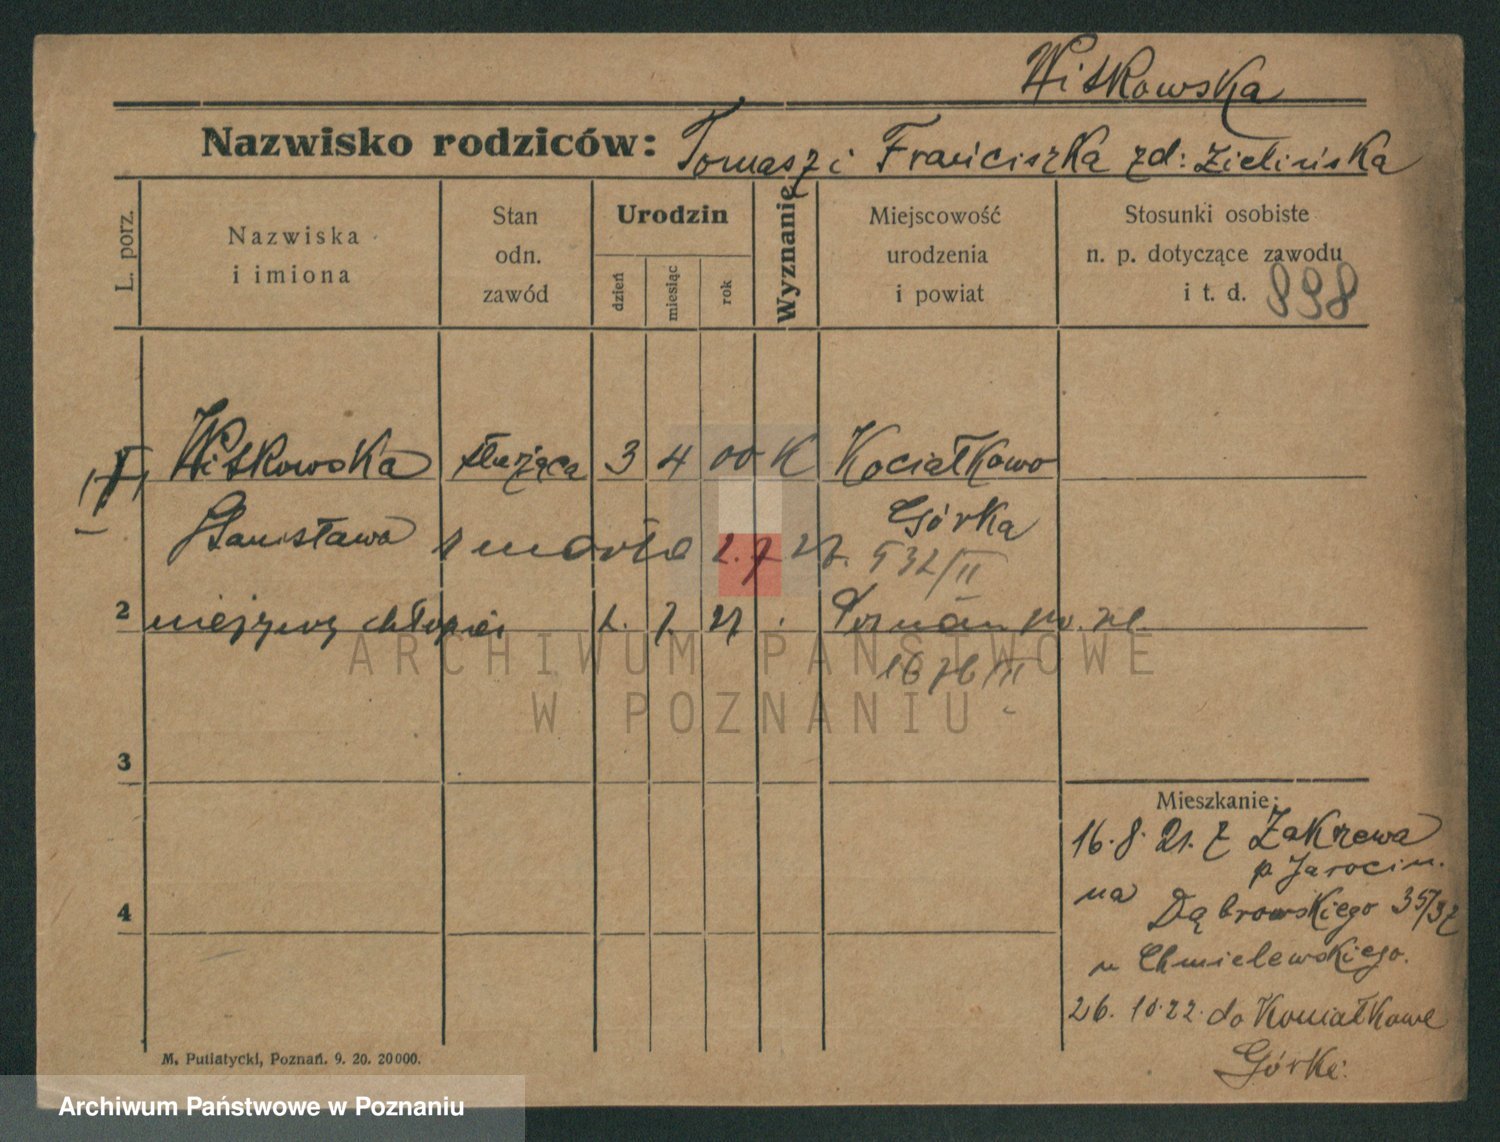 Witkowska
Nazwisko rodziców: Tomasz i Franciszka zd: Zielińska
L. porz.
Nazwiska
i imiona
Stan
odn.
zawód
Urodzin
dzień
miesiąc
rok
Wyznanie
Miejscowość
urodzenia
i powiat
Stosunki osobiste
n. p. dotyczące zawodu
i t. d.
898
Witkowska służąca 3 4 00 K Kociałkowa
Stanisława zmarła 2.7 27. Górka
532/II
2 nieżywy chłopiec 2. 7. 27 Poznań
1676/II
3
4
Mieszkanie:
16.8.21. z Zakrzewa
p. Jarocin.
na Dąbrowskiego 35/37
u Chmielewskiego.
26. 10.22. do Kociałkowe
Górki.
M. Putiatycki, Poznań. 9. 20. 20000.
ARCHIWUM PAŃSTWOWE
W POZNANIU
Archiwum Państwowe w Poznaniu